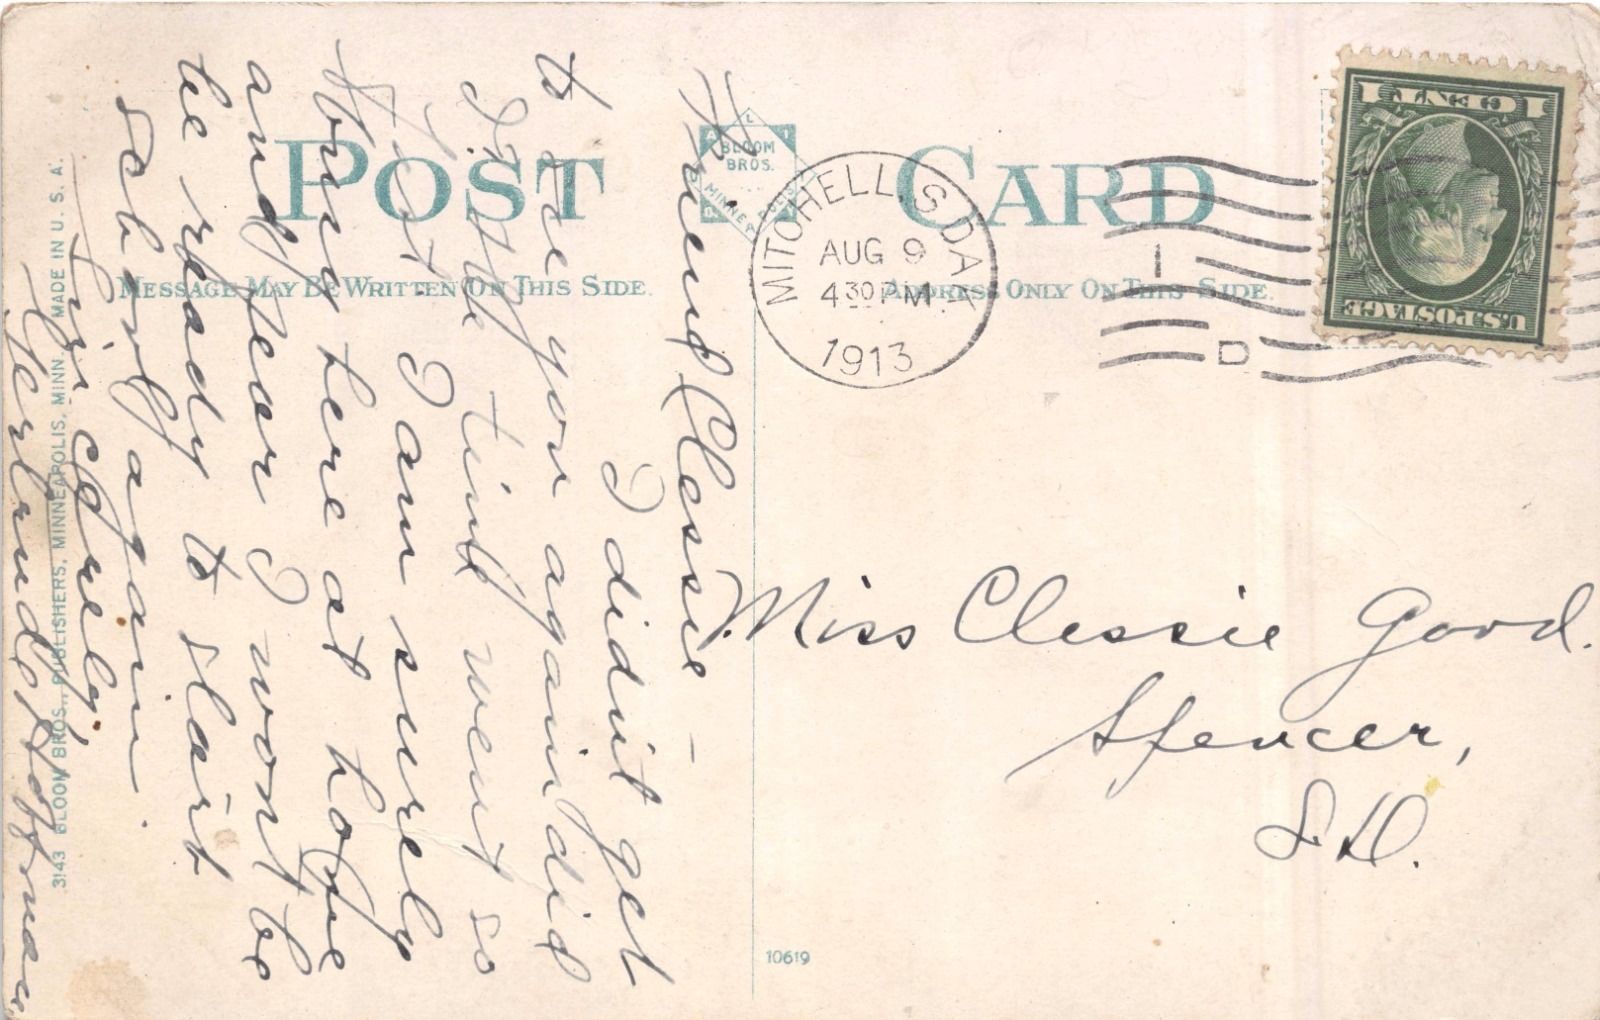 POST CARD
ALI
BLOOM
BROS.
MINNEAPOLIS
MESSAGE MAY BE WRITTEN ON THIS SIDE.
ADDRESS ONLY ON THIS SIDE.
MITCHELL, S. DAK.
AUG 9
4 30 PM
1913
1
D
1 CENT 1
U.S. POSTAGE
Friend Clessie -
I didnt get
to see you again did
I. The time went so
fast. I am surely
here at home
and fear I wont be
be ready to start
school again
Sincerely,
Gertrude Hoffman
Miss Clessie Good.
Spencer,
S.D.
3143 BLOOM BROS., PUBLISHERS, MINNEAPOLIS, MINN. MADE IN U. S. A.
10619